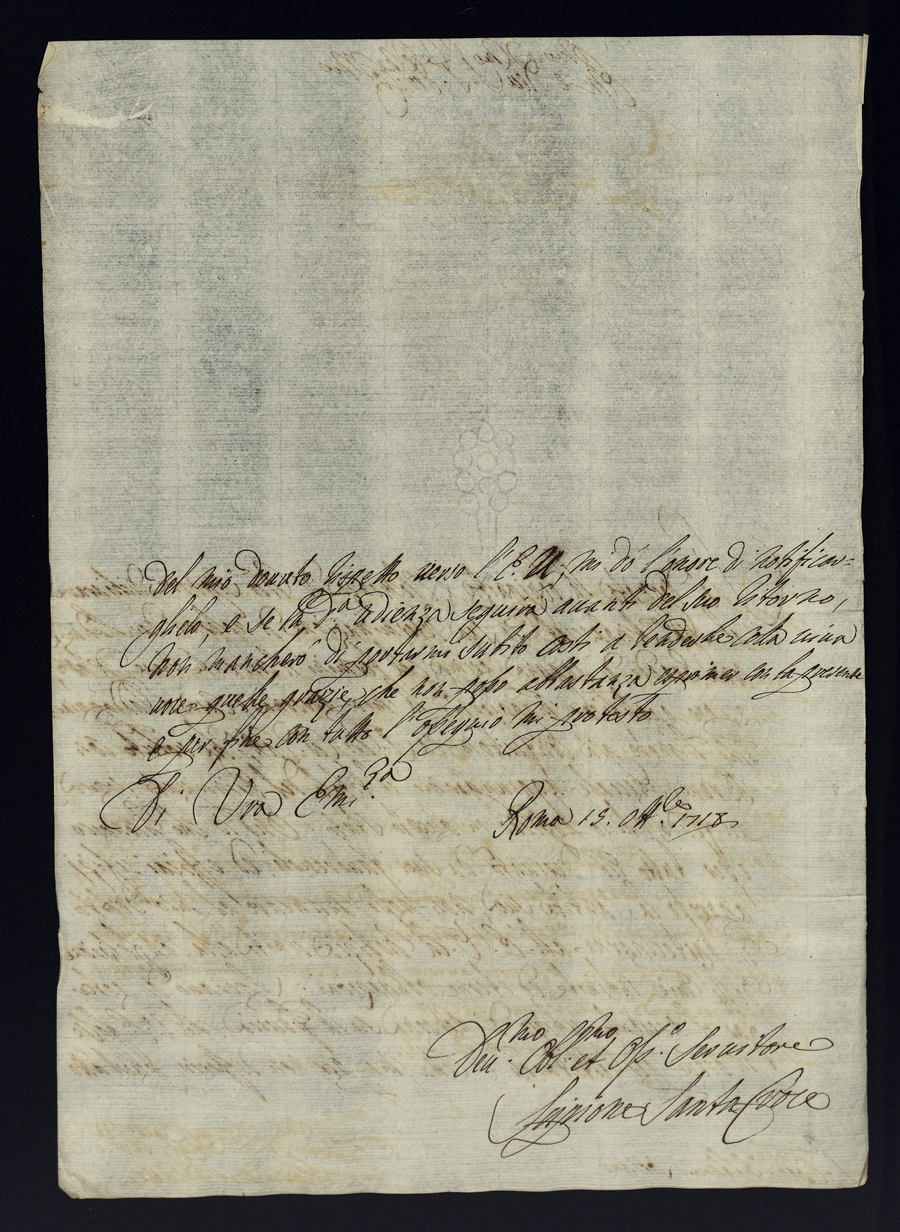 del mio dovuto rispetto verso l'E. V., mi dò l'onore di notificar=
glielo, e se la d.ª udienza seguirà avanti del suo ritorno,
non mancherò di portarmi subito costì a renderle colla viva
voce quelle grazie, che non posso abbastanza esprimer con la presente
e per fine con tutto l'ossequio mi protesto
Di Vra Em.za
Roma 15. Ott.re 1718
Dev.mo Obl.mo et Oss.o Servitore
Scipione Santa Croce